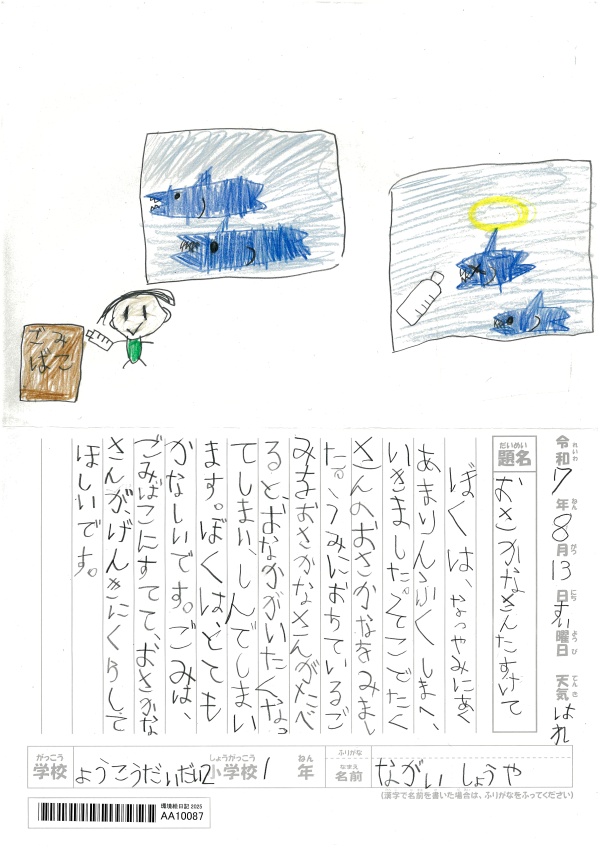 ごみ
ばこ
令和7年8月13日すい曜日 天気 はれ
れいわ ねん がつ にち ようび てんき
だいめい
題名
おさかなさんたすけて
ぼくは、なつやみにあく
あまりんぶく しまへ、
いきました。そこでたく
さんのおさかなをみまし
た。うみにおちているご
みをおさかなさんがたべ
ると、おなかがいたくなっ
てしまい、しんでしまい
ます。ぼくは、とても
かなしいです。ごみは、
ごみばこにすてて、おさかな
さんが、げんきにくらして
ほしいです。
がっこう しょうがっこう ねん
学校 ようこうだいだい2小学校 1年
ふりがな
なまえ
名前 ながい しょうや
(漢字で名前を書いた場合は、ふりがなをふってください)
環境絵日記 2025
AA10087